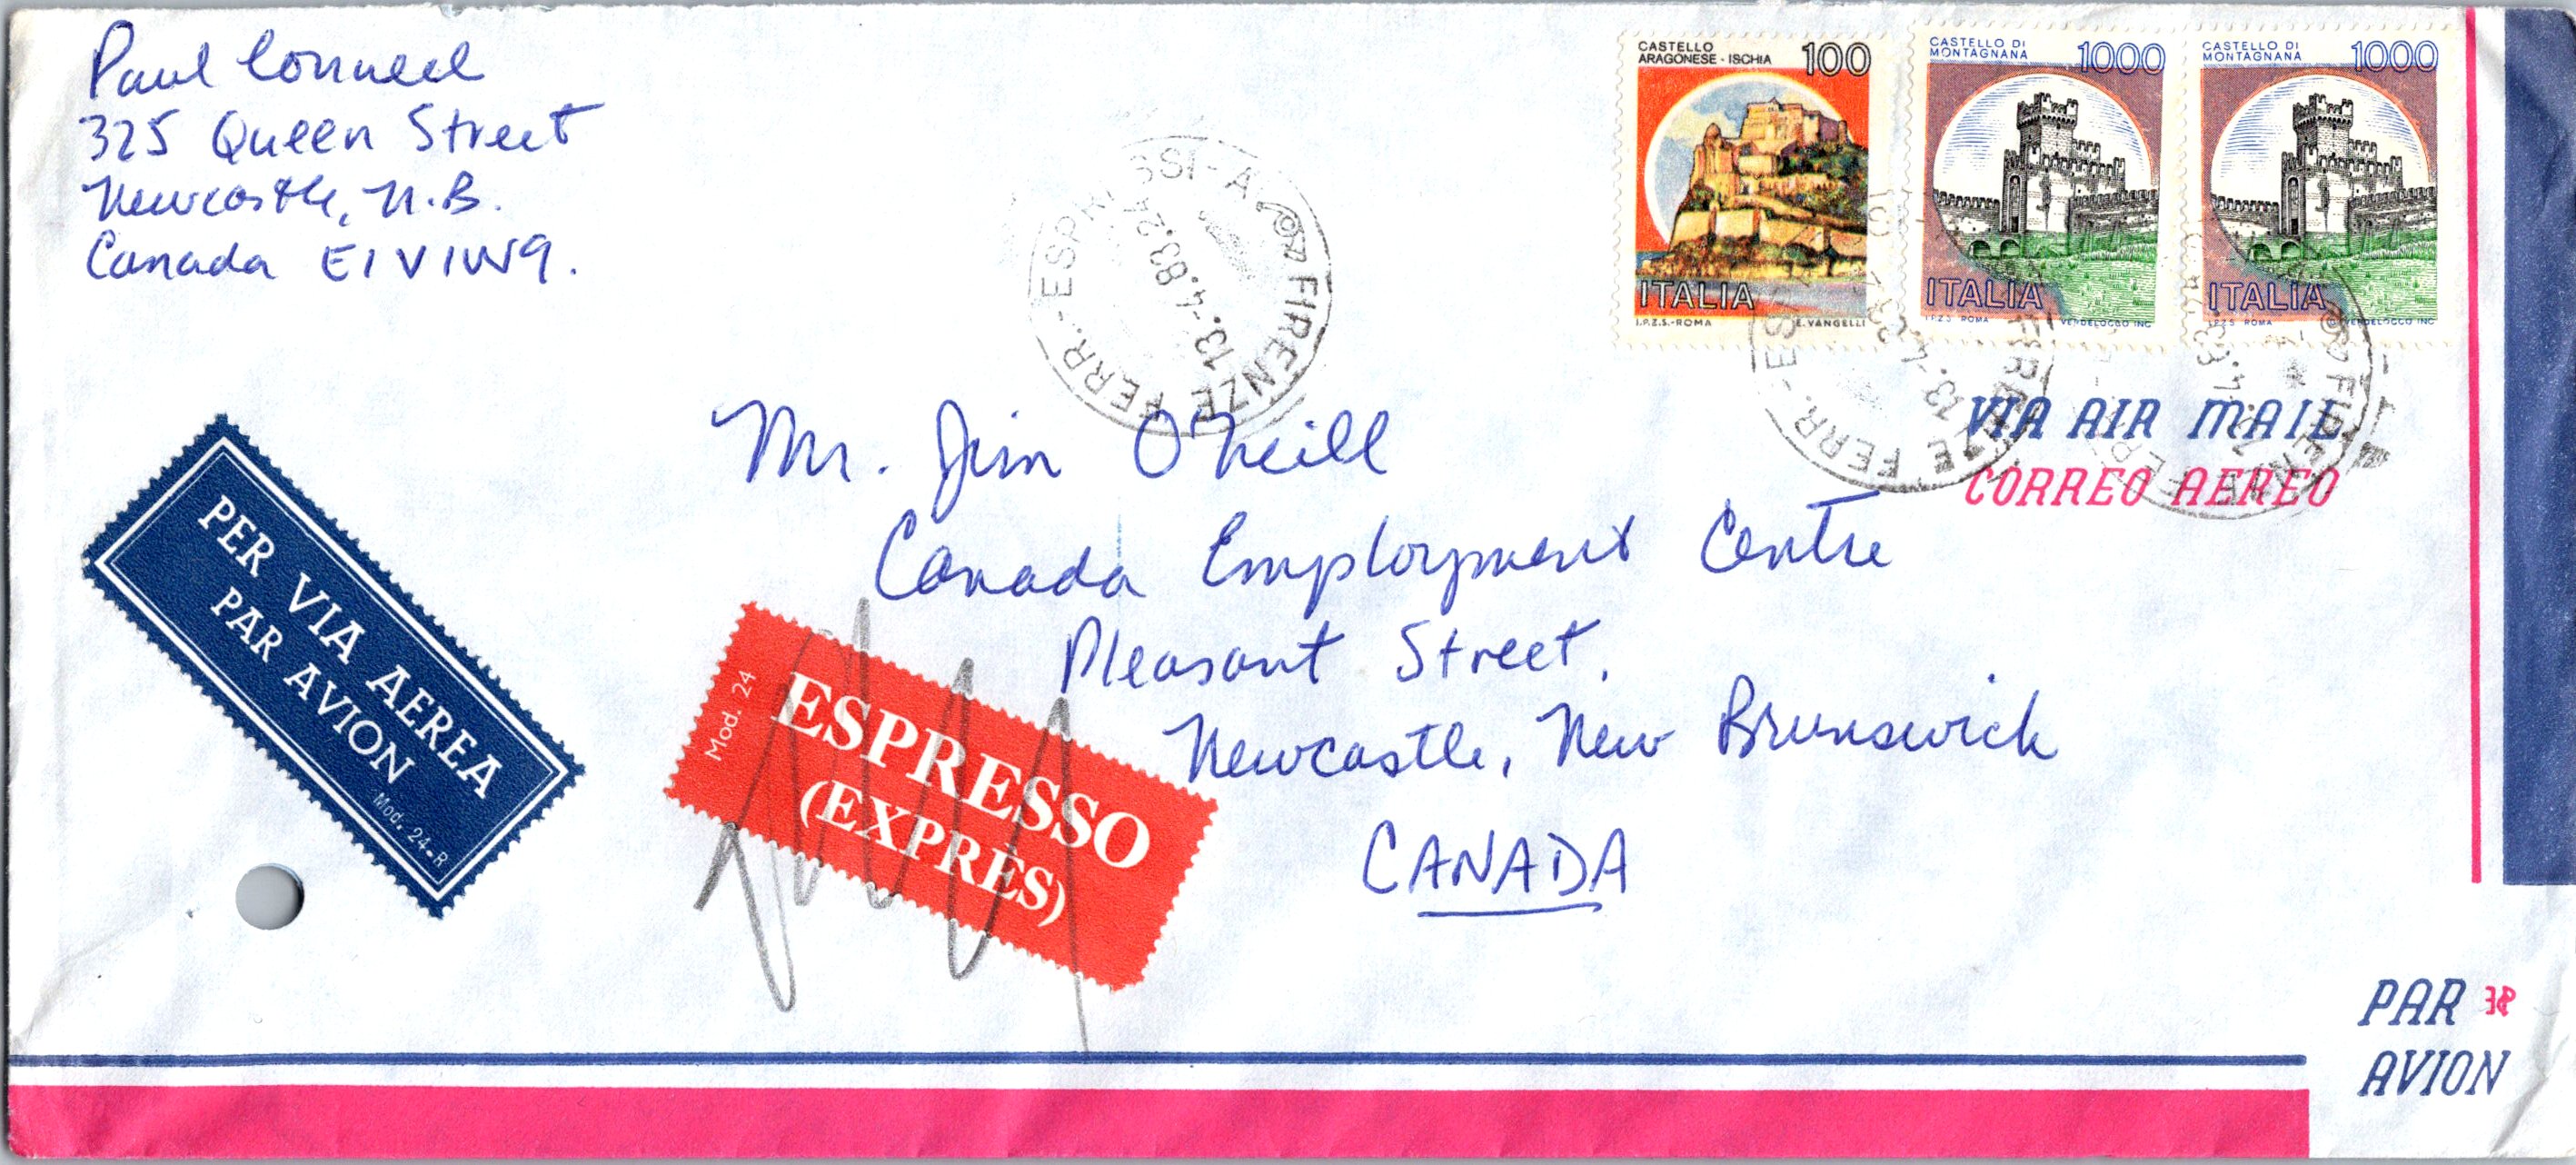 Paul Connell
325 Queen Street
Newcastle, N.B.
Canada E1V1W9.
CASTELLO
ARAGONESE - ISCHIA 100
ITALIA
I.P.Z.S.-ROMA E. VANGELLI
CASTELLO DI
MONTAGNANA 1000
ITALIA
I.P.Z.S. ROMA VERDELOCCO INC
CASTELLO DI
MONTAGNANA 1000
ITALIA
I.P.Z.S. ROMA VERDELOCCO INC
FIRENZE FERR. - ESPRESSI -
13.-4.83.24
FIRENZE FERR. - ES
13.-4.83
FIRENZE FERR.
VIA AIR MAIL
CORREO AEREO
Mr. Jim O'Neill
Canada Employment Centre
Pleasant Street,
Newcastle, New Brunswick
CANADA
PER VIA AEREA
PAR AVION
Mod. 24-R
Mod. 24
ESPRESSO
(EXPRÈS)
PAR
AVION